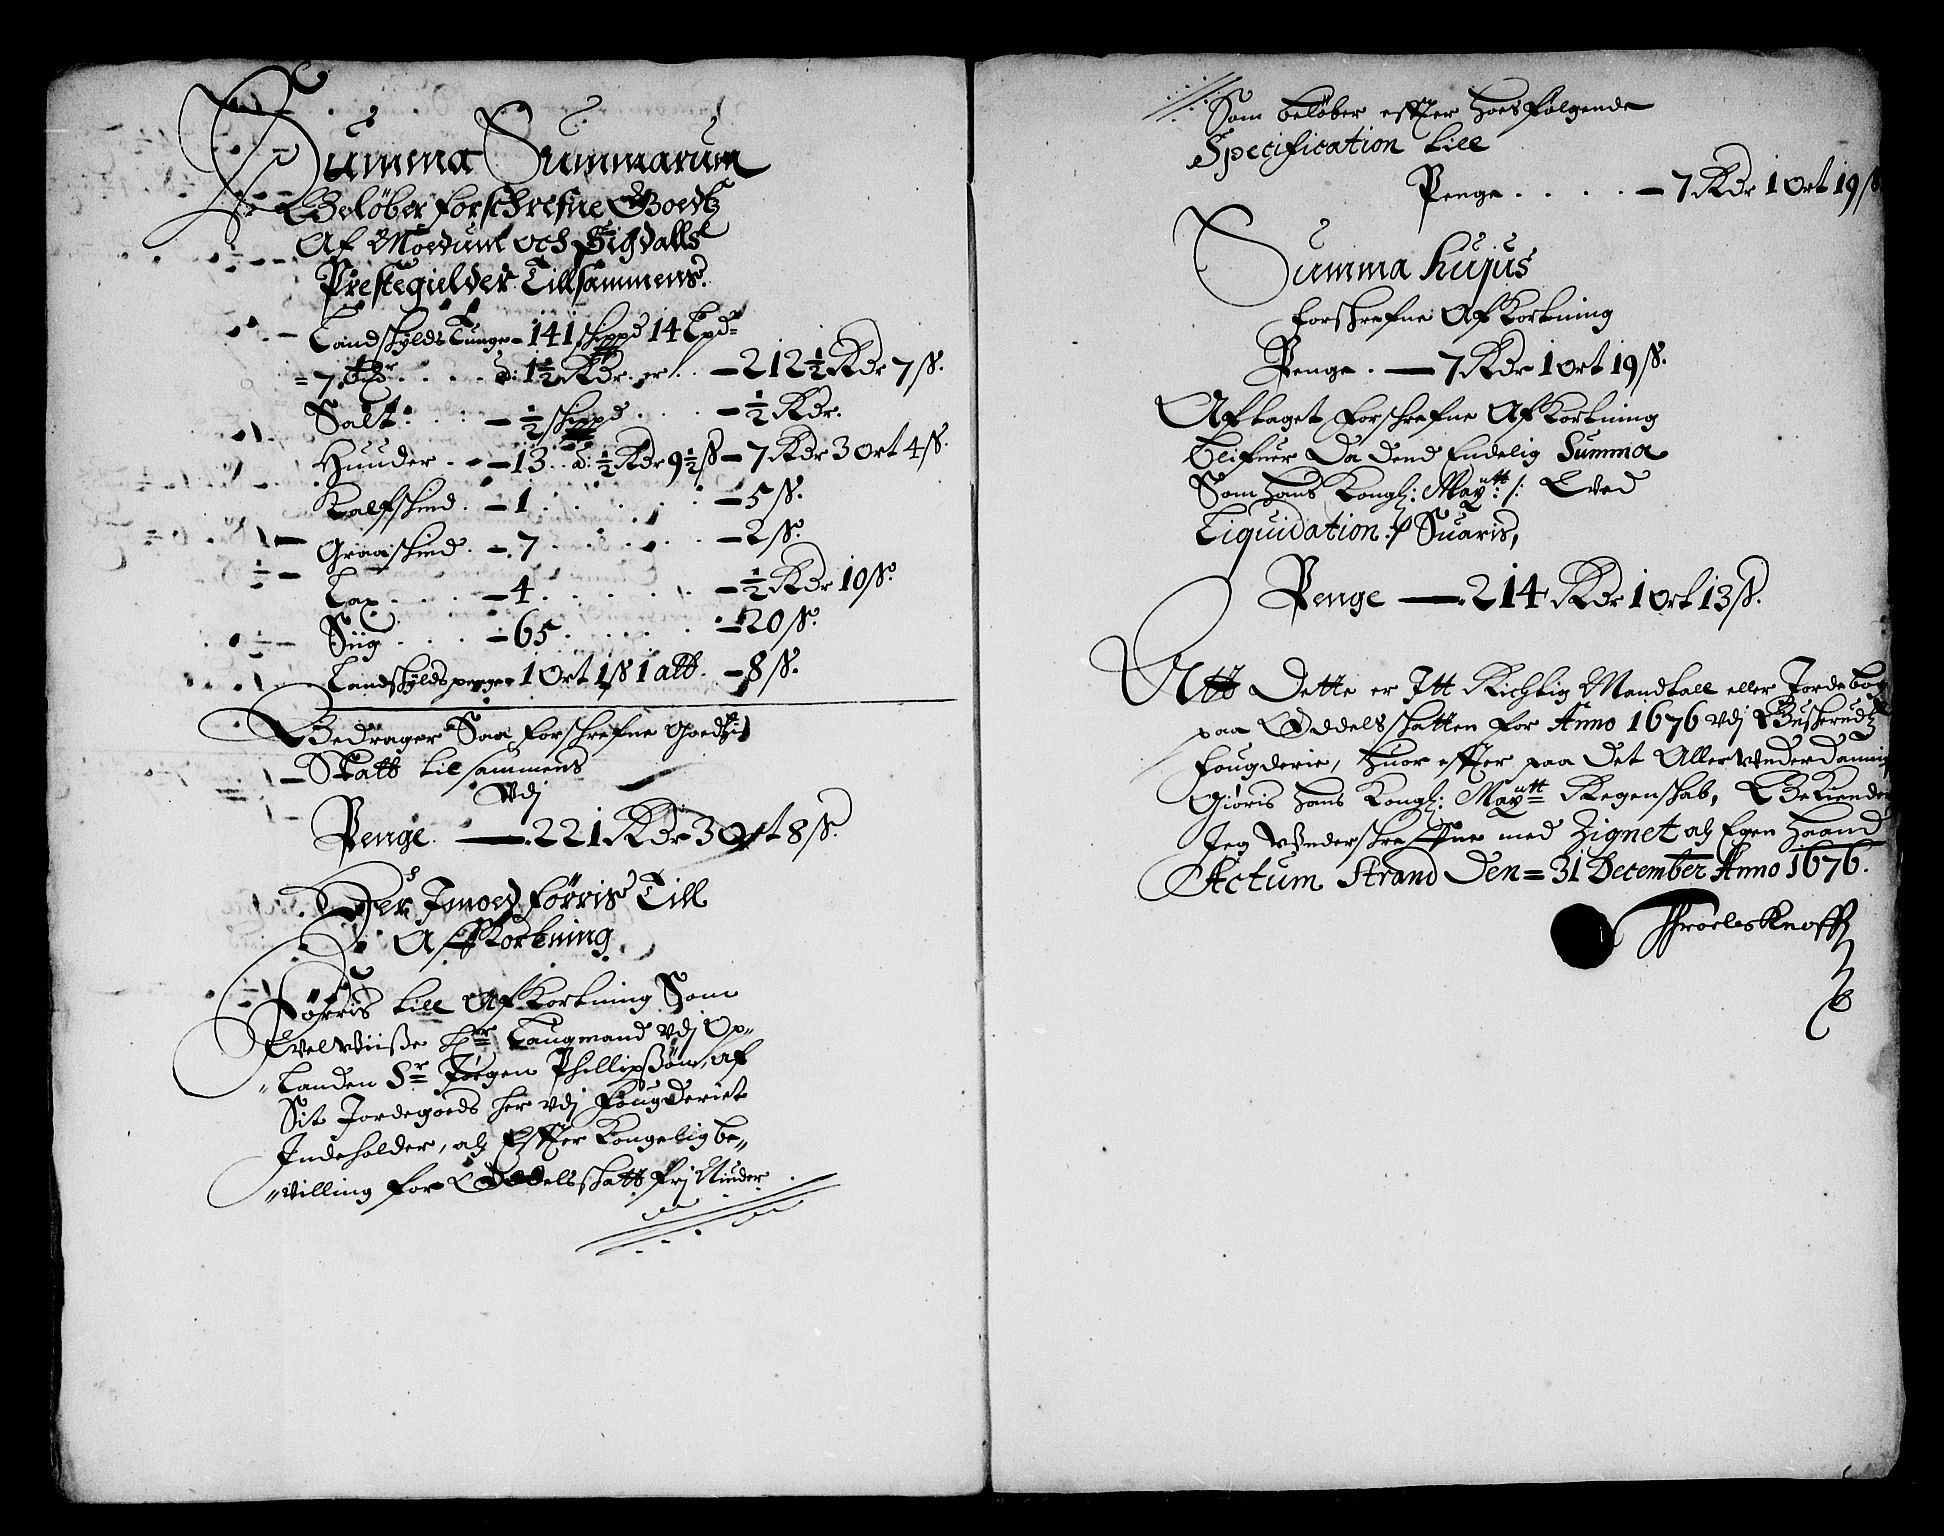 Summa Summarum
Beløber forschrefne Goedtz
Af Moedumb och Sigdalls
Prestegielder Tillsammens.
Landskylds Tunge - 141 skippd 14 Lpdr
= 7 . . . . . â: 1½ Rdr. er . . — 212½ Rdr 7 ß.
Salt: . . : — ½ skippd . . . — ½ Rdr.
Huuder . . — 13 . . â: ½ Rdr 9½ ß — 7 Rdr 3 Ort 4 ß.
Kalfskind . — 1 . . . . . . — 5 ß.
Graaskind . — 7 . . . . . . — 2 ß.
Lax . . . . — 4 . . . . . . — ½ Rdr 10 ß.
Siig . . . — 65 . . . . . — 20 ß.
Landskylds penge - 1 Ort 1 ß 1 alb. — 8 ß.
Bedrager Saa forschrefne Goedtzis
Skatt tilsammens
Vdj
Penge. — 221 Rdr 3 Ort 8 ß.
Der Jmoedførris Till
Af Kortning
Førris till Af Kortning Som
Evelwiisße Hr: Laugmand vdj Op„
„Landen Sr: Jørgen Phillipsßøn, af
Sit Jordegoeds her vdj Fougderiet
Jndeholder, alz Effter Kongelig be„
„villing for Oddelsskatt frj Niuder
Som beløber effter hoesfølgende
Specification till
Penge . . . . — 7 Rdr 1 Ort 19 ß
Summa hujus
forskrefne Af Kortning
Penge . — 7 Rdr 1 Ort 19 ß.
Aftaget forschrefne Af Kortning
Blifuer Da Dend Endelig Summa
Som hans Kongl: Maytt: /: Ved
Liquidation :/ Suaris,
Penge — 214 Rdr 1 Ort 13 ß.
Att Dette er Itt Richtig Mandtall eller Jordebog
paa Oddelsskatten for Anno 1676 vdj Buskerudtz
Fougderie, huor effter paa Det Aller vnderdannig
Giøris hans Kongl: Maytt Regenskab, Bekiender
Jeg Vnderskrefne med Zignet alz Egen haand
Actum Strand Den = 31 December Anno 1676.
Throels Knoff